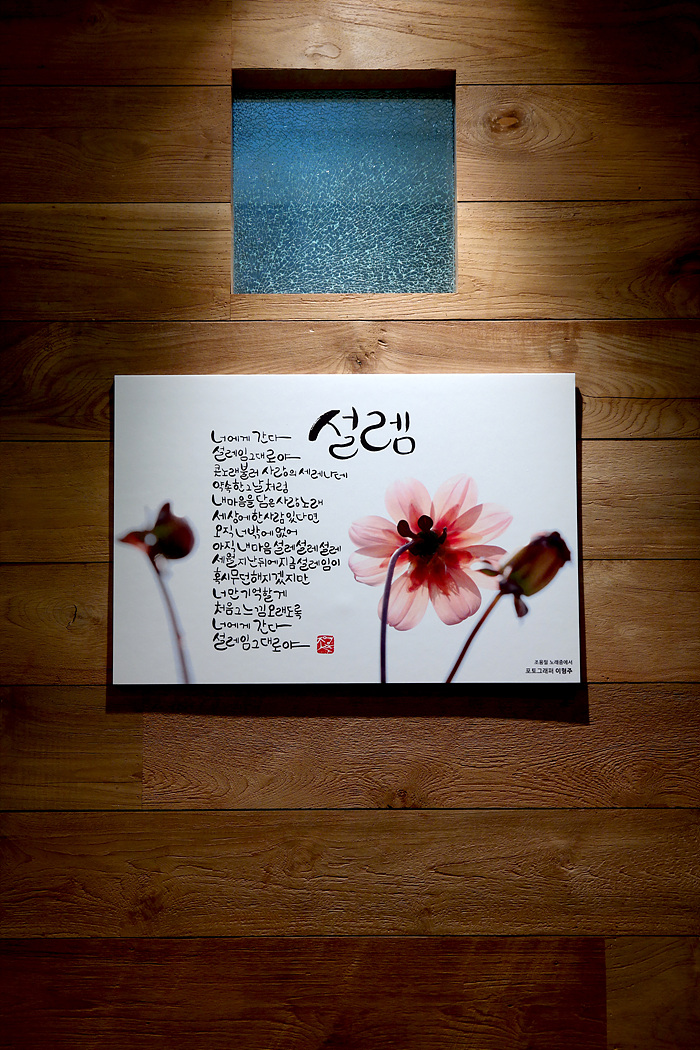 설렘
너에게 간다
설레임 그대로야
큰 노래 불러 사랑의 세레나데
약속한 그날처럼
내 마음을 담은 사랑 노래
세상에 한 사람 있다면
오직 너밖에 없어
아직 내 마음 설레 설레 설레
세월 지난 뒤에 지금 설레임이
혹시 무던해지겠지만
너만 기억할게
처음 그 느낌 오래도록
너에게 간다
설레임 그대로야
조용필 노래중에서
포토그래퍼 이형주